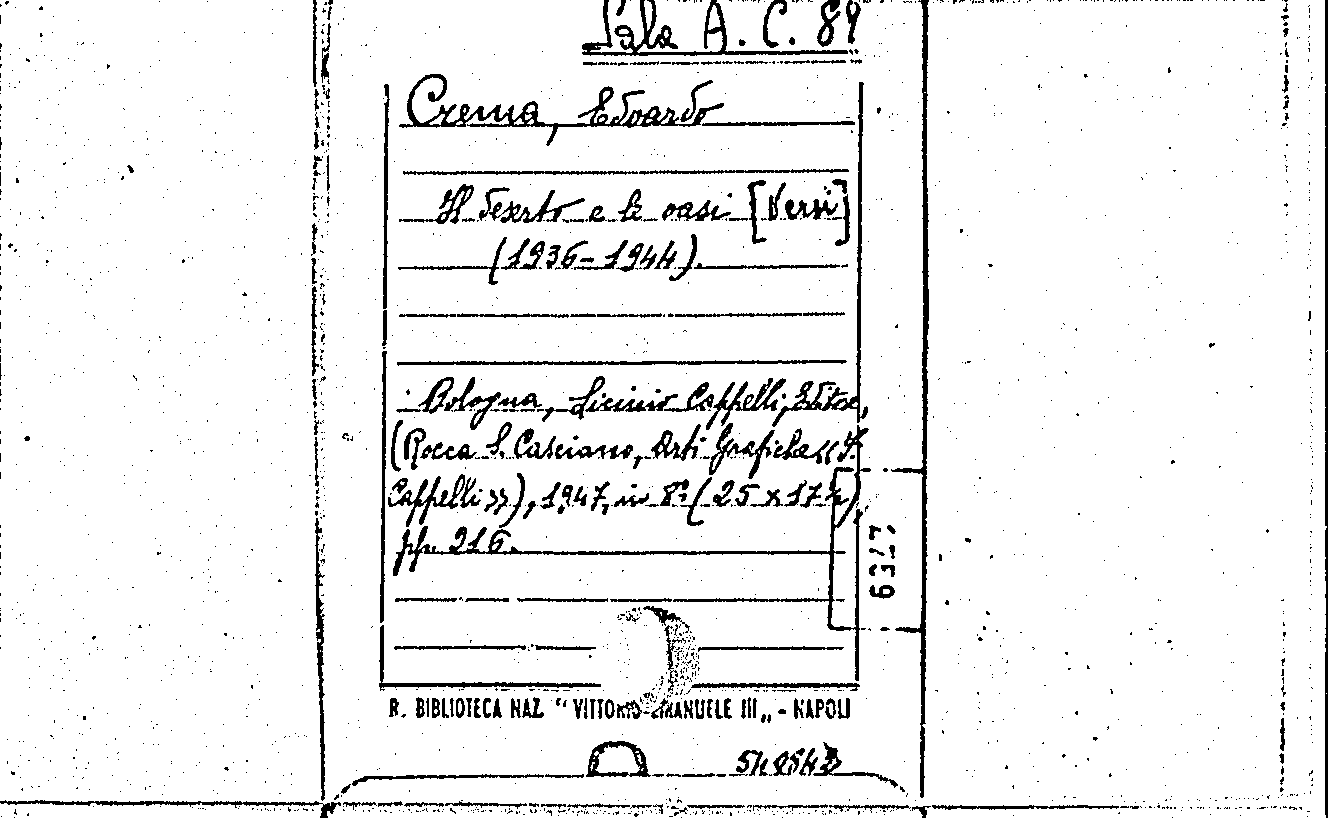 Sala A. C. 89
Crema, Edoardo
Il deserto e le oasi [Versi]
(1936-1944).
Bologna, Licinio Cappelli, Editore,
(Rocca S. Casciano, Arti Grafiche «F.
Cappelli»), 1947, in 8º (25 x 17 ½)
pp. 216.
6327
R. BIBLIOTECA NAZ. "VITTORIO EMANUELE III„ - NAPOLI